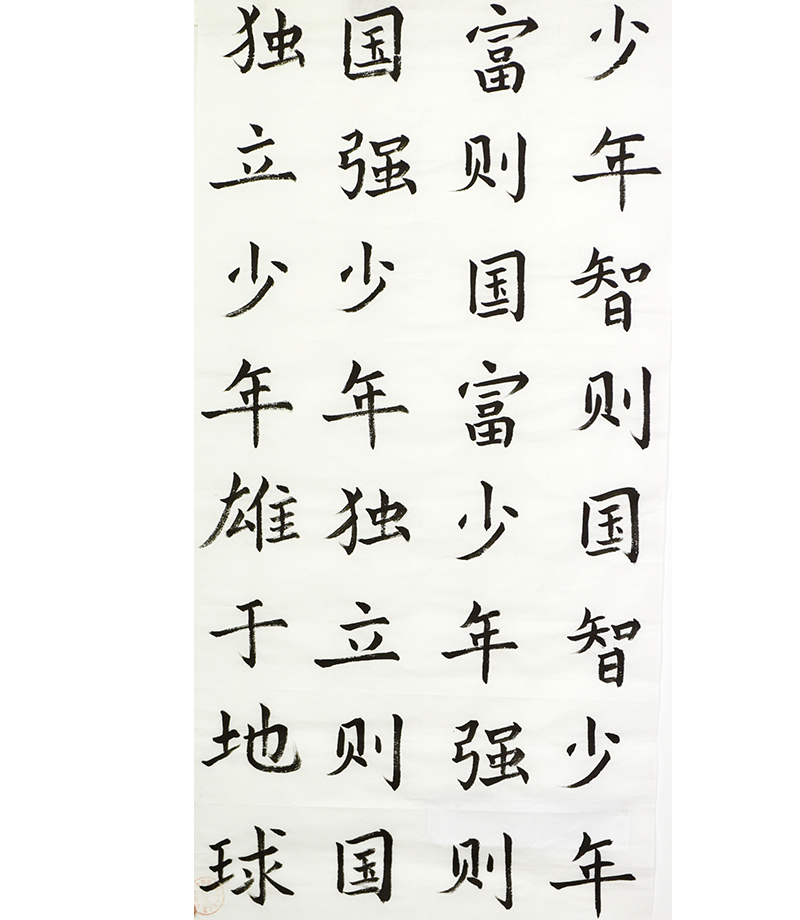 少年智则国智少年
富则国富少年强则
国强少年独立则国
独立少年雄于地球